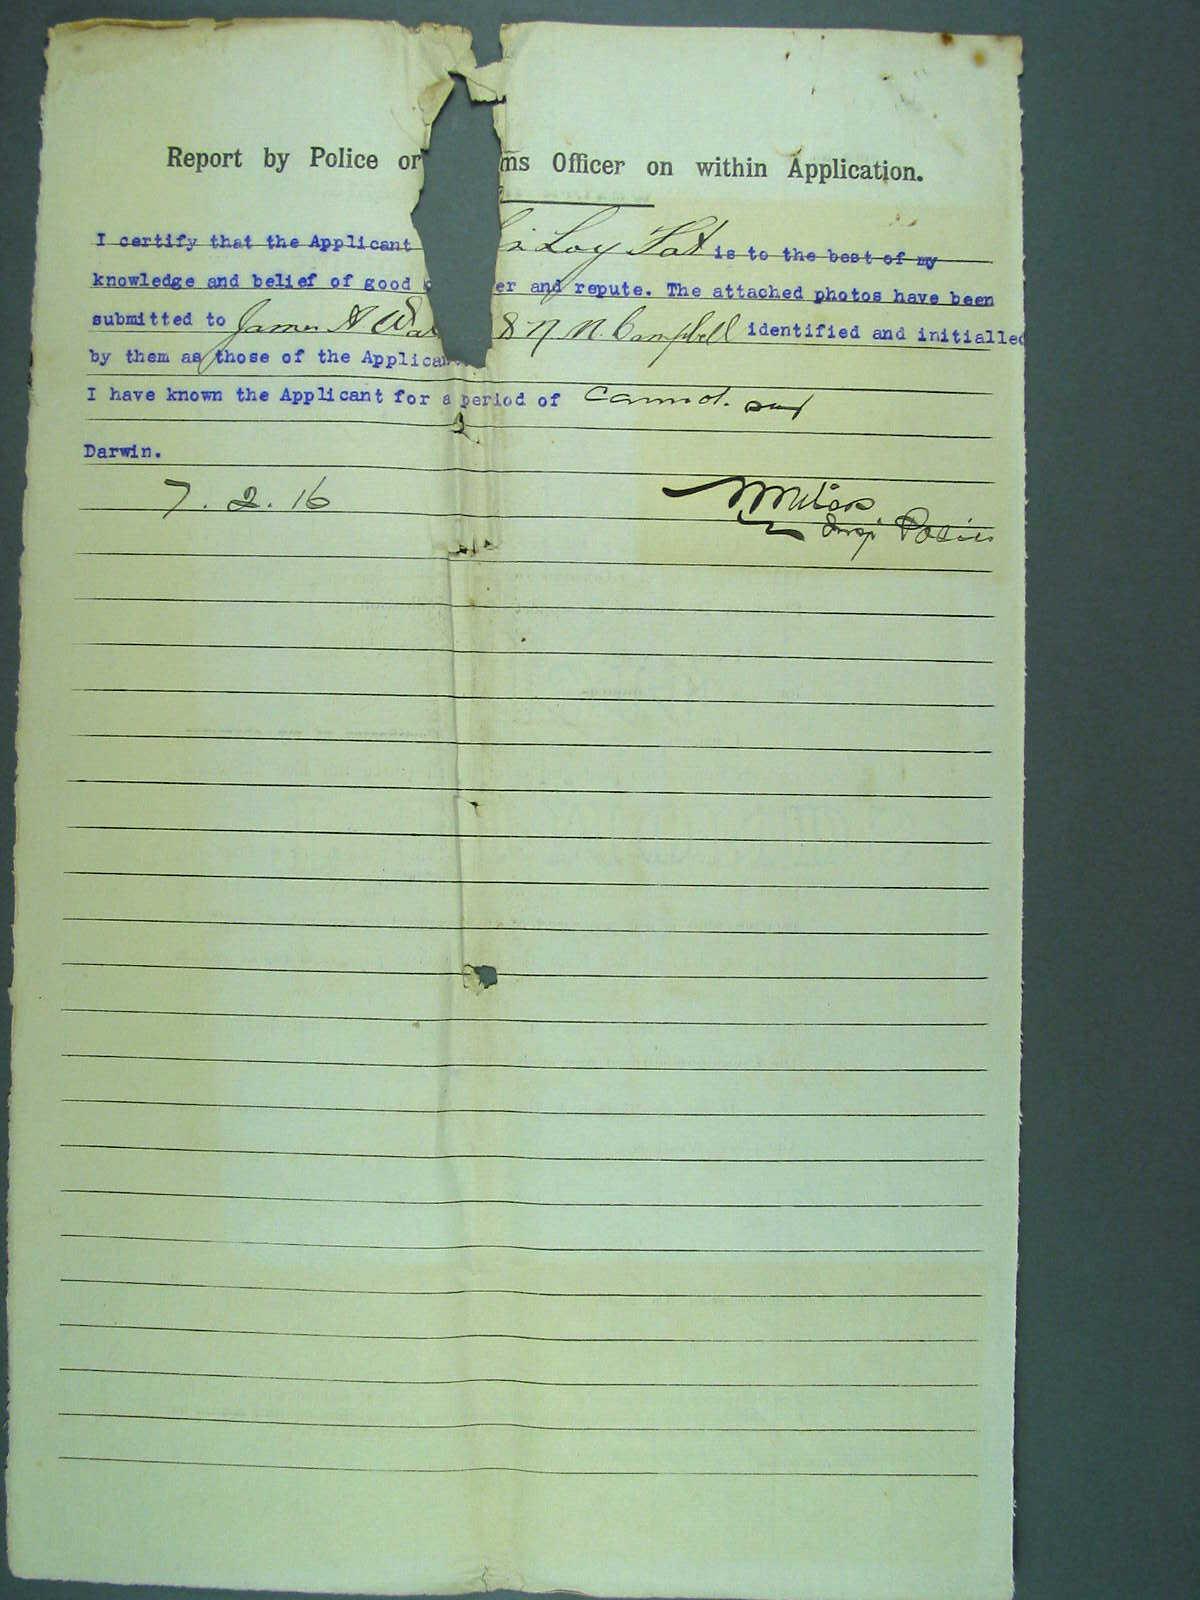 Report by Police or ms Officer on within Application.
I certify that the Applicant Loy Fat is to the best of my
knowledge and belief of good er and repute. The attached photos have been
submitted to James A Wa & N. N. Campbell identified and initialled
by them as those of the Applican
I have known the Applicant for a period of cannot say
Darwin.
7.2.16
Insp Police